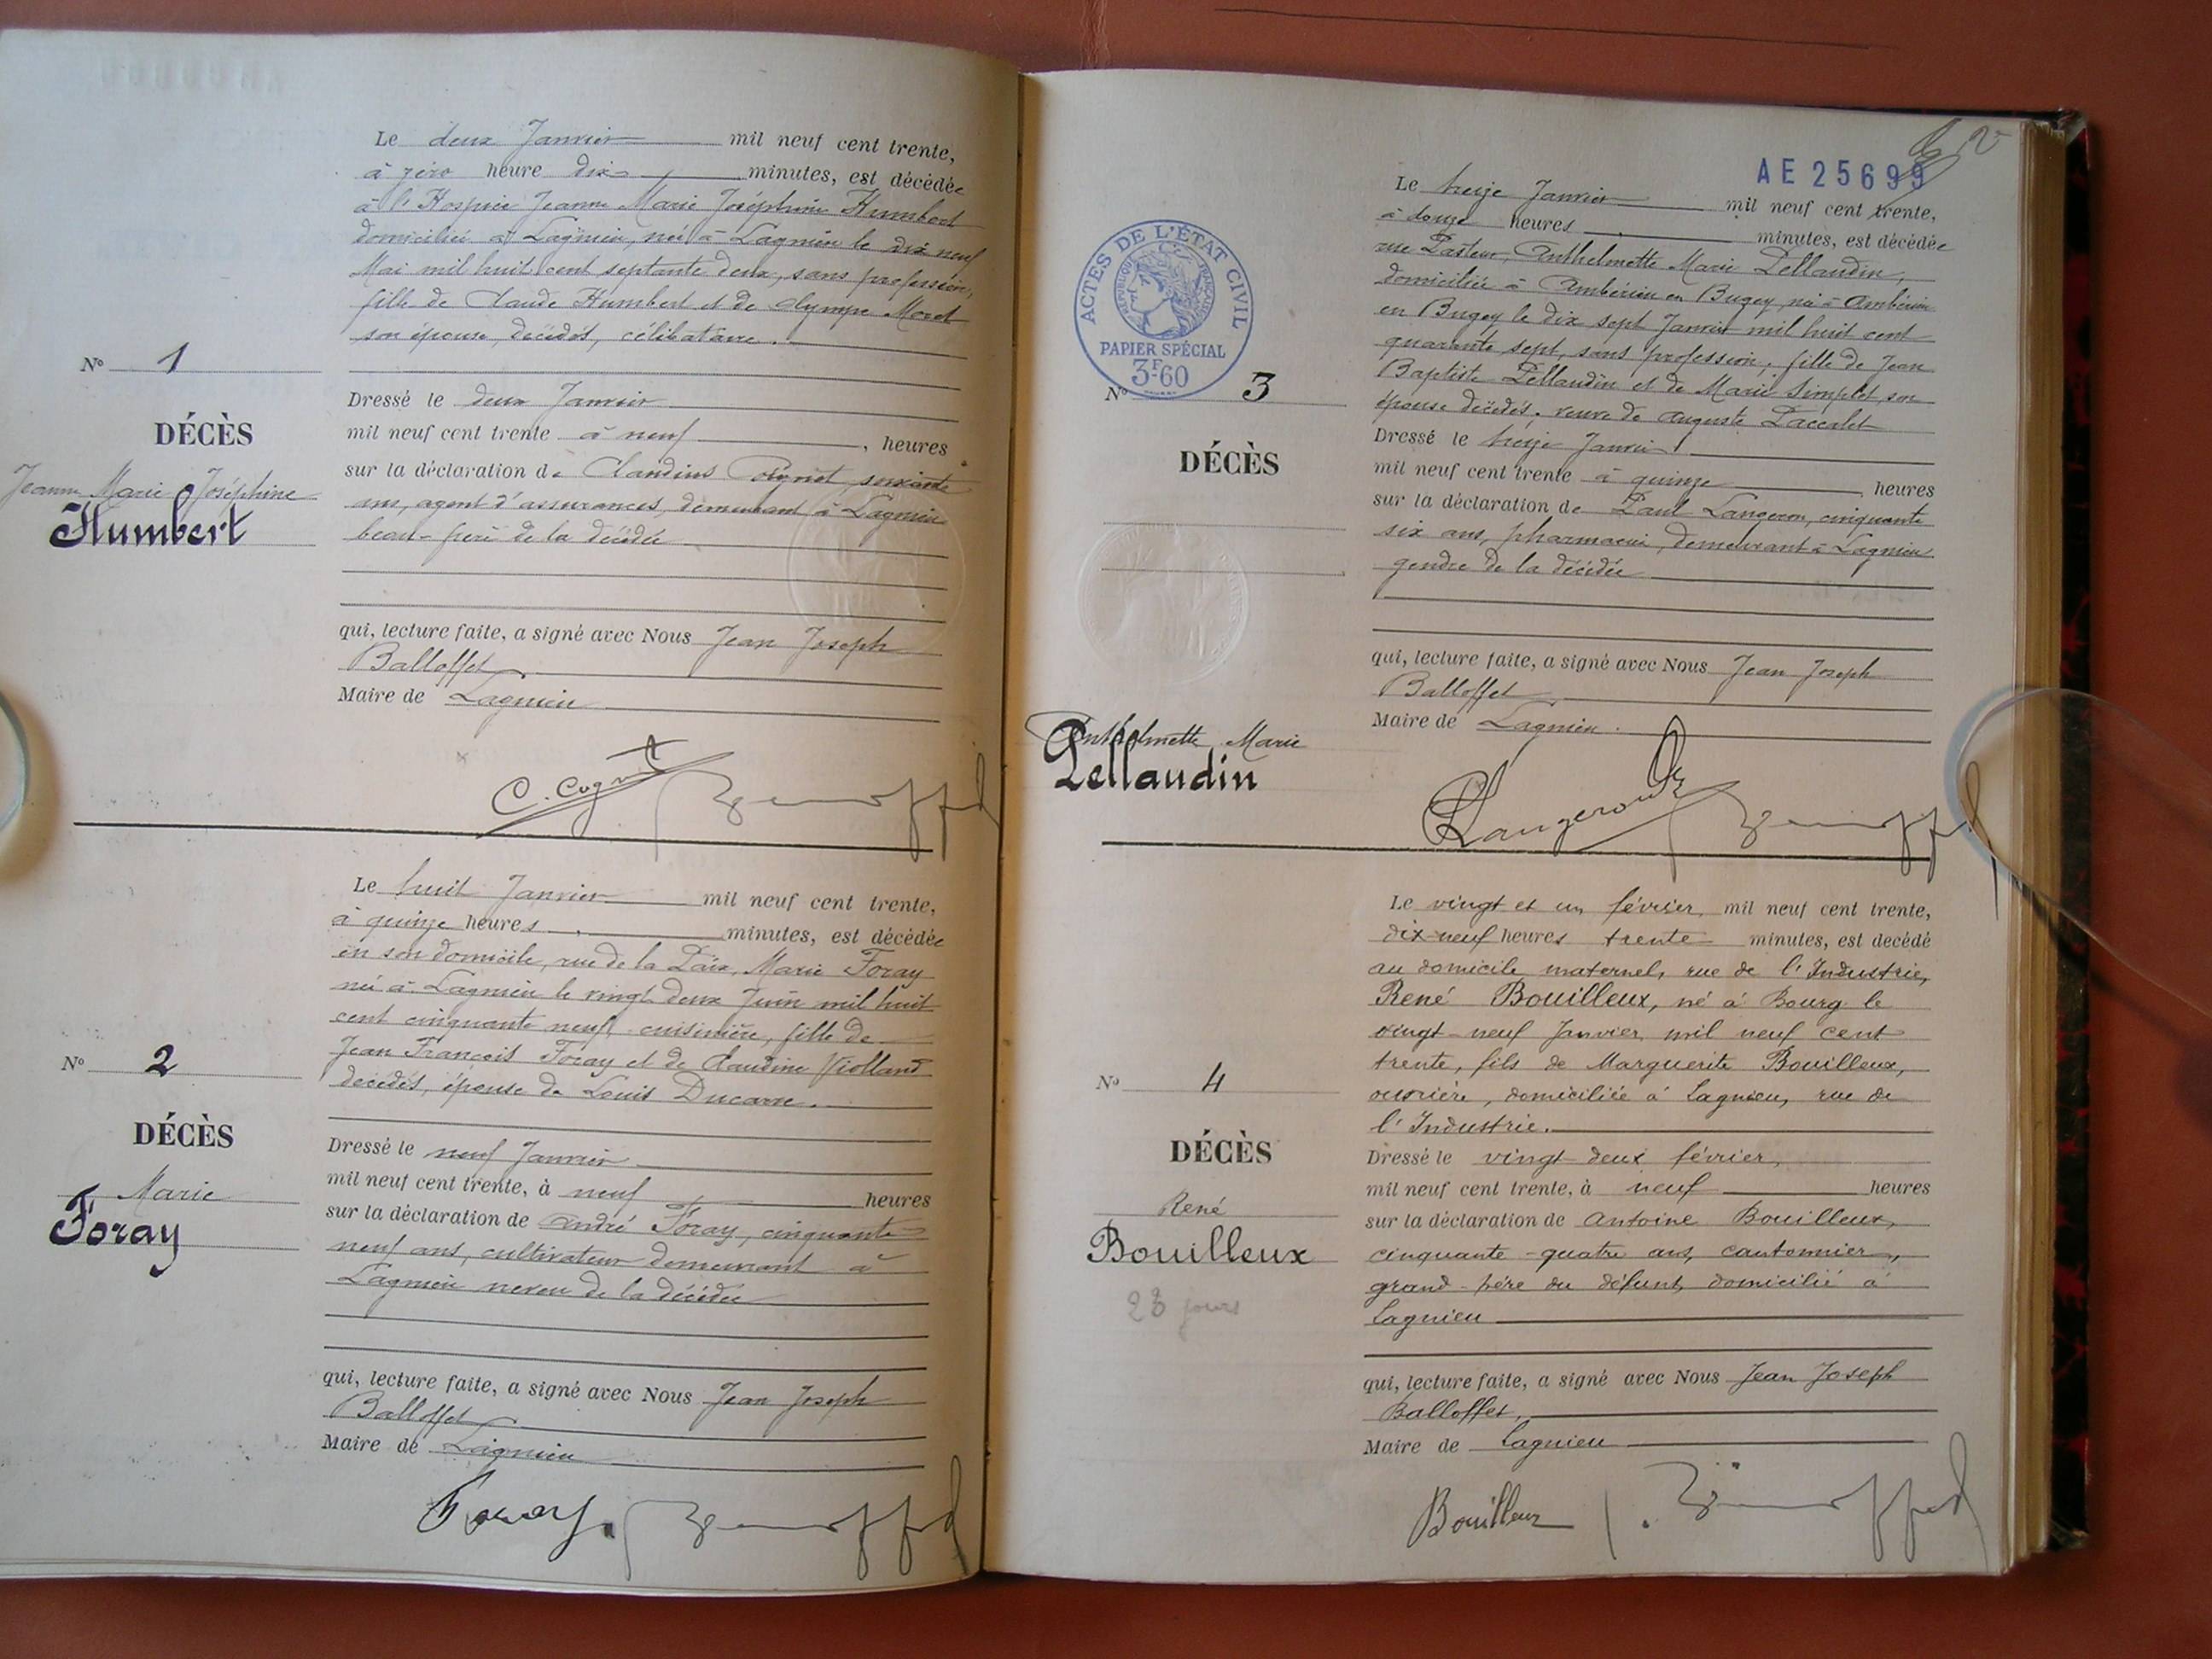 Le deux Janvier mil neuf cent trente,
à zéro heure dix minutes, est décédée
à l'Hospice Jeanne Marie Joséphine Humbert
domiciliée à Lagnieu, née à Lagnieu le dix neuf
Mai mil huit cent septante deux, sans profession,
fille de Claude Humbert et de Olympe Moret
son épouse, décédés, célibataire.
No 1
DÉCÈS
Jeanne Marie Joséphine
Humbert
Dressé le deux Janvier
mil neuf cent trente à neuf, heures
sur la déclaration de Claudius soixante
ans, agent d'assurances, demeurant à Lagnieu
beau-père de la décédée
qui, lecture faite, a signé avec Nous Jean Joseph
Balloffet
Maire de Lagnieu
Le huit Janvier mil neuf cent trente,
à quinze heures minutes, est décédée
en son domicile, rue de la Paix, Marie Foray
née à Lagnieu le vingt deux Juin mil huit
cent cinquante neuf, cuisinière, fille de
Jean François Foray et de Claudine Violland
décédés, épouse de Louis Ducarre.
No 2
DÉCÈS
Marie
Foray
Dressé le neuf Janvier
mil neuf cent trente, à neuf heures
sur la déclaration de André Foray, cinquante
neuf ans, cultivateur demeurant à
Lagnieu neveu de la décédée
qui, lecture faite, a signé avec Nous Jean Joseph
Balloffet
Maire de Lagnieu
Foray
AE 25699
Le treize Janvier mil neuf cent trente,
à douze heures minutes, est décédée
rue Pasteur, Anthelmette Marie Pellaudin,
domiciliée à Ambérieu en Bugey, née à Ambérieu
en Bugey le dix sept Janvier mil huit cent
quarante sept, sans profession, fille de Jean
Baptiste Pellaudin et de Marie Simplet, son
épouse décédés. veuve de Auguste Paccalet
ACTES DE L'ÉTAT CIVIL
RÉPUBLIQUE FRANÇAISE
PAPIER SPÉCIAL
3F60
No 3
DÉCÈS
Anthelmette Marie
Pellaudin
Dressé le treize Janvier
mil neuf cent trente à quinze heures
sur la déclaration de Paul Langeron, cinquante
six ans, pharmacien, demeurant à Lagnieu
gendre de la décédée
qui, lecture faite, a signé avec Nous Jean Joseph
Balloffet
Maire de Lagnieu.
Langeron
Le vingt et un février mil neuf cent trente,
dix-neuf heures trente minutes, est decédé
au domicile maternel, rue de l'Industrie,
René Bouilleux, né à Bourg le
vingt-neuf Janvier mil neuf cent
trente, fils de Marguerite Bouilleux,
ouvrière, domiciliée à Lagnieu, rue de
l'Industrie.
No 4
DÉCÈS
René
Bouilleux
23 jours
Dressé le vingt-deux février,
mil neuf cent trente, à neuf heures
sur la déclaration de Antoine Bouilleux,
cinquante-quatre ans, cantonnier,
grand-père du défunt, domicilié à
Lagnieu
qui, lecture faite, a signé avec Nous Jean Joseph
Balloffet,
Maire de Lagnieu
Bouilleux